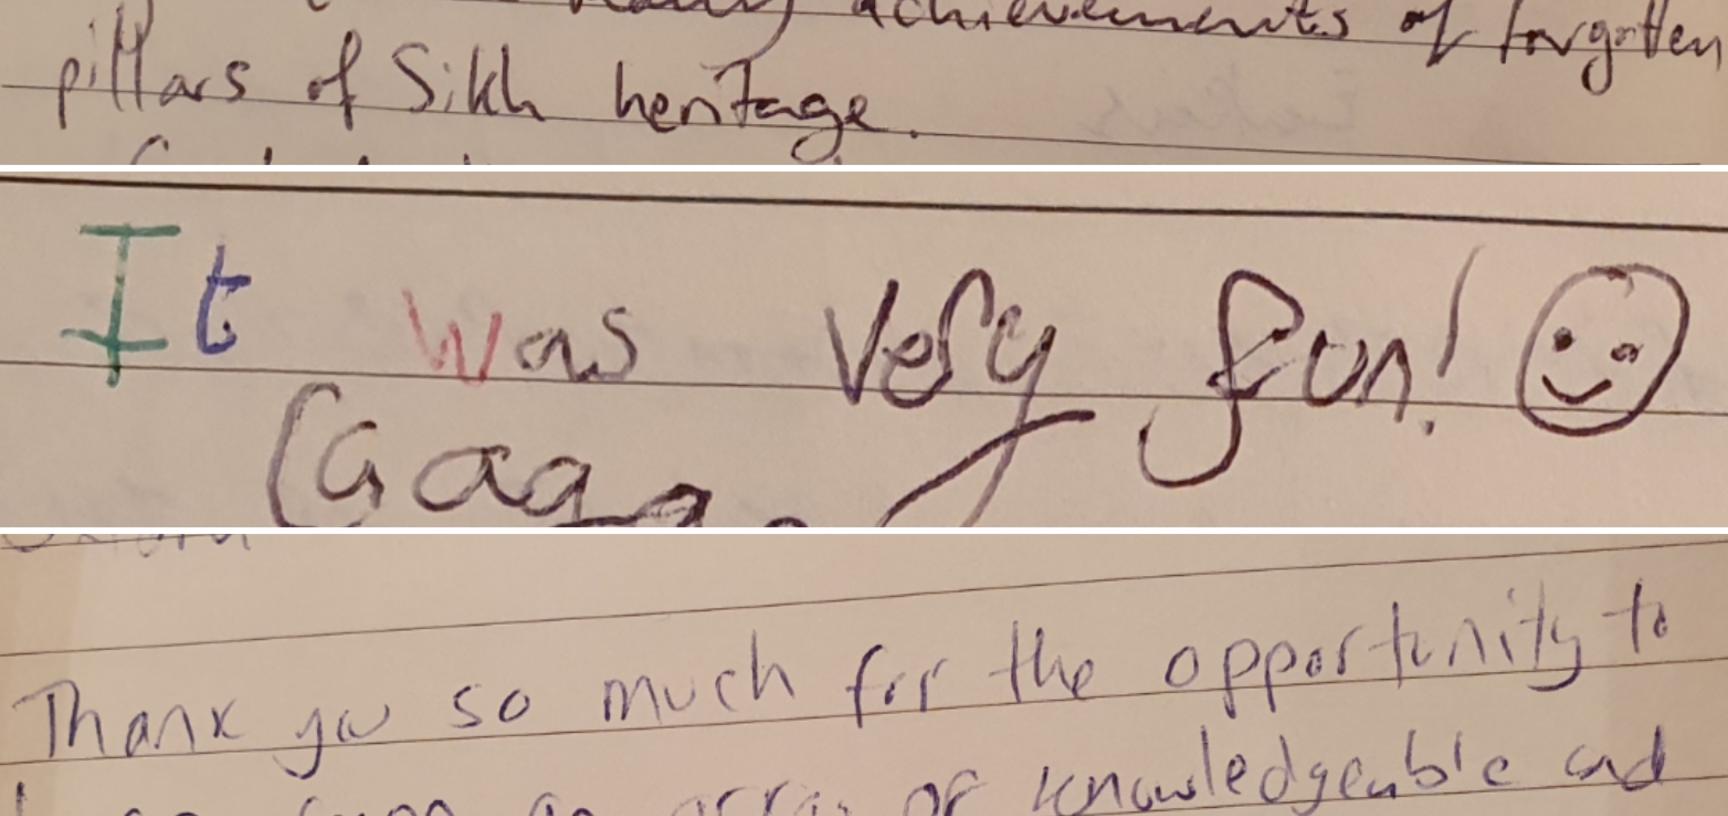 achievements of forgotten
pillars of Sikh heritage.
It was very fun! ☺
Thank you so much for the opportunity to
knowledgeable and